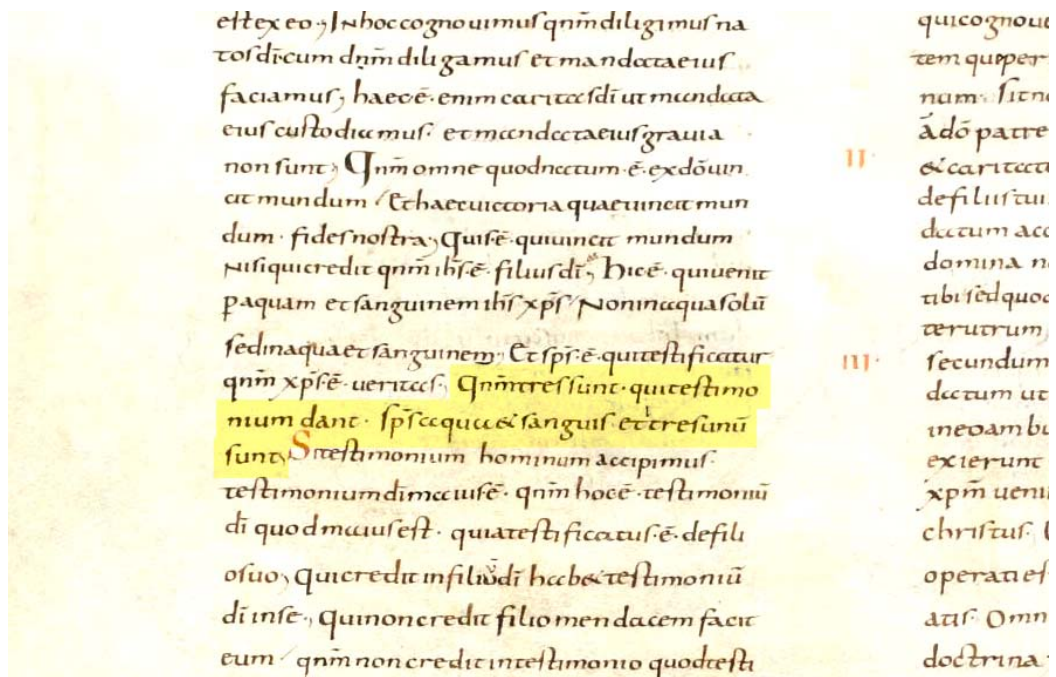 est ex eo, In hoc cognouimus qnm̄ diligimus na
tos dī cum dn̄m diligamus et mandata eius
faciamus, haec ē· enim caritas dī ut mandata
eius custodiamus· et mandata eius grauia
non sunt, Qnm̄ omne quod natum ·ē· ex dō uin
cit mundum / Et haec uictoria quae uincit mun
dum · fides nostra, Quis ē· qui uincit mundum
Nisi qui credit qnm̄ ih̄s ·ē· filius dī, hic ē· qui uenit
p̄ aquam et sanguinem ih̄s xp̄s / Non in aqua solū
sed in aqua et sanguinem, Et sp̄s ·ē· qui testificatur
qnm̄ xp̄s ē· ueritas, Qnm̄ tres sunt · qui testimo
nium dant · sp̄s aqua & sanguis · et tres unū
sunt, Si testimonium hominum accipimus·
testimonium dī maius ē· qnm̄ hoc ē· testimoniū
dī quod maius est · quia testificatus ·ē· de fili
o suo, qui credit in filiū dī hab& testimoniū
dī in se, Qui non credit filio mendacem facit
eum / qnm̄ non credit in testimonio quod testi
qui cognoue
tem que per
num· sit no
ā dō patre
II·
& caritat
de filiis tui
datum acc
domina n
tibi sed quod
terutrum,
III·
secundum
datum ut
in eo ambu
exierunt
xp̄m ueni
christus·
operati es
atis· Omn
doctrina